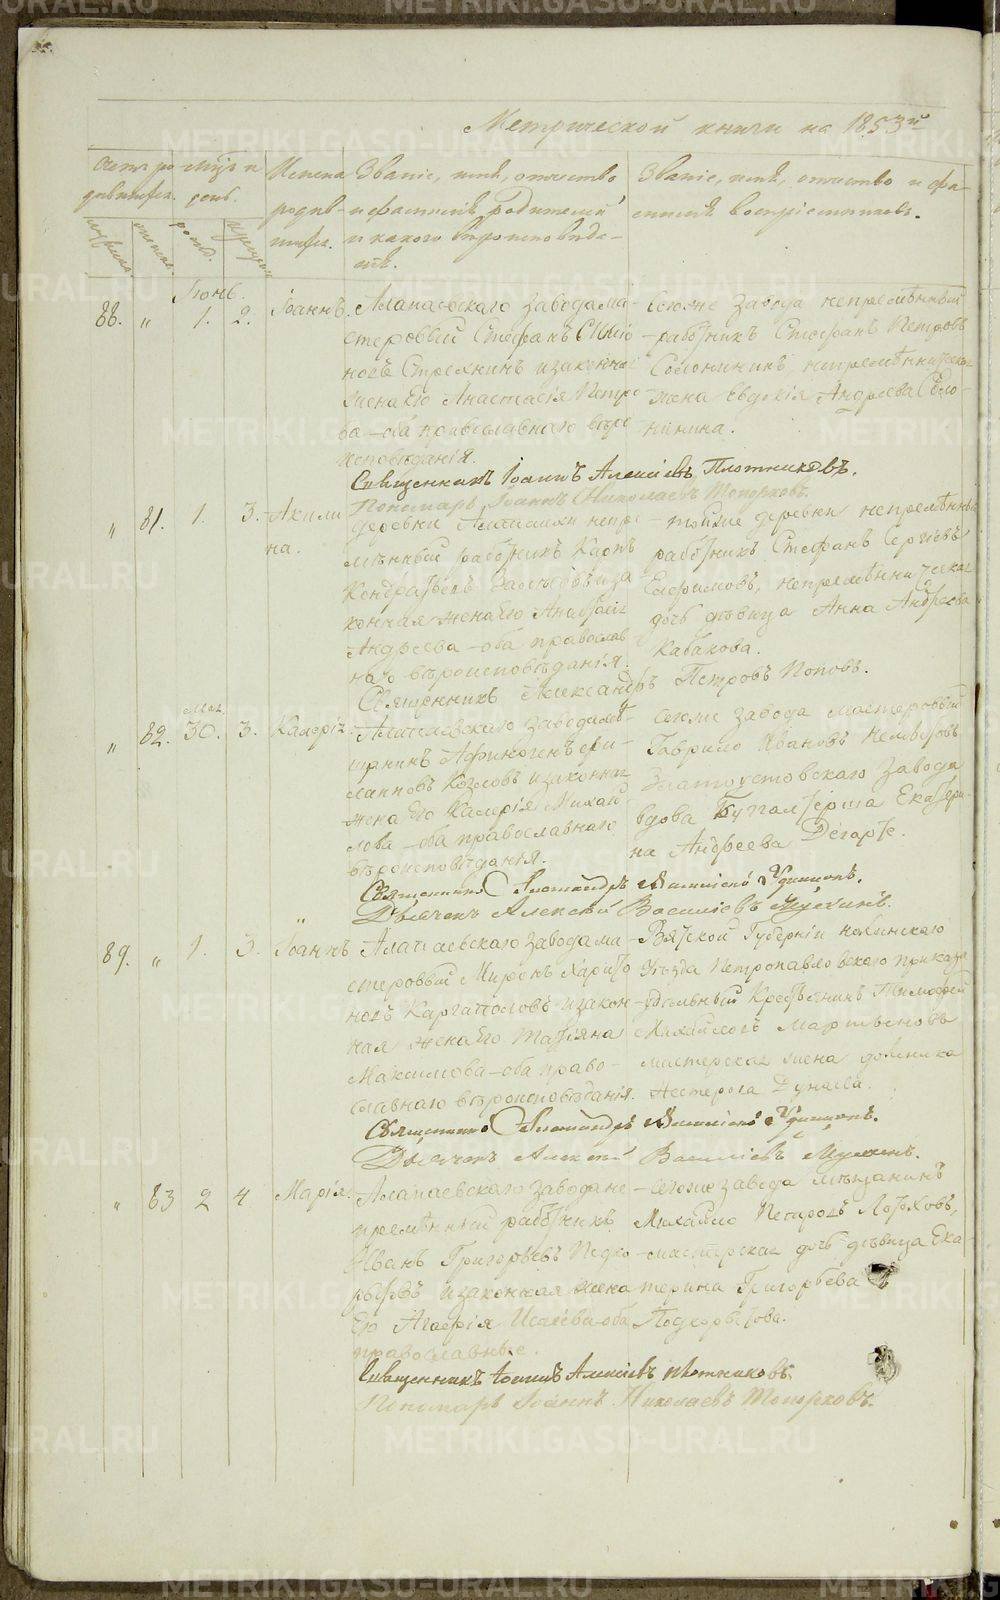 Метрической книги на 1853й
Счетъ ро-
дившихся.
Мѣс. и
день.
Имена
родив-
шихся.
Званіе, имя, отчество
и фамилія родителей
и какого вѣроисповѣда-
нія.
Званіе, имя, отчество и фа-
милія воспріемниковъ.
Іюнь.
88. " 1. 2. Іоаннъ.
Алапаевскаго завода ма-
стеровый Стефанъ
Стрехнинъ и законная
жена его Анастасія Петро-
ва – оба православнаго вѣро-
исповѣданія.
Сегоже завода непремѣнный
работникъ Стефанъ Петровъ
непремѣнническая
жена Евдокія Андреева
Священникъ Іоаннъ Алексіевъ Плотниковъ.
Пономарь Іоаннъ Николаевъ Топорковъ.
" 81. 1. 3. Акили-
на.
деревни непре-
мѣнный работникъ Карпъ
Кондратьевъ и за-
конная жена его
Андреева – оба православ-
наго вѣроисповѣданія.
тойже деревни непремѣнный
работникъ Стефанъ Сергіевъ
Ефимовъ, непремѣнническая
дочь дѣвица Анна Андреева
Кабакова.
Священникъ Александръ Петровъ Поповъ.
Мая
" 82. 30. 3. Калерія.
Алапаевскаго завода мѣ-
щанинъ Афиногенъ
Козловъ и законная
жена его Калерія Михай-
лова – оба православнаго
вѣроисповѣданія.
Сегоже завода мастеровый
Гаврило Ивановъ
Златоустовскаго завода
вдова Бугалтерша Екатери-
на Андреева Дегарте.
Священникъ Александръ Удинцевъ.
Дьячекъ Алексѣй Василіевъ
89. " 1. 3. Іоаннъ
Алапаевскаго завода ма-
стеровый Миронъ Харито-
новъ Каргаполовъ и закон-
ная жена его Татіяна
Максимова – оба право-
славнаго вѣроисповѣданія.
Вятской Губерніи Нолинскаго
Уѣзда Петропавловскаго приказа
удѣльный Крестьянинъ Тимофей
Михайловъ Мартьяновъ
мастерская жена домника
Нестерова Дунаева.
Священникъ Александръ Удинцевъ.
Дьячекъ Алексѣй Василіевъ
" 83 2 4 Марія.
Алапаевскаго завода не-
премѣнный работникъ
Иванъ Григорьевъ Подко-
рытовъ и законная жена
его Исаева – оба
православные.
Сегоже завода мѣщанинъ
Михайло Петровъ
мастерская дочь дѣвица Ека-
терина Григорьева
Подкорытова.
Священникъ Іоаннъ Алексіевъ Плотниковъ.
Пономарь Іоаннъ Николаевъ Топорковъ.
METRIKI.GASO-URAL.RU